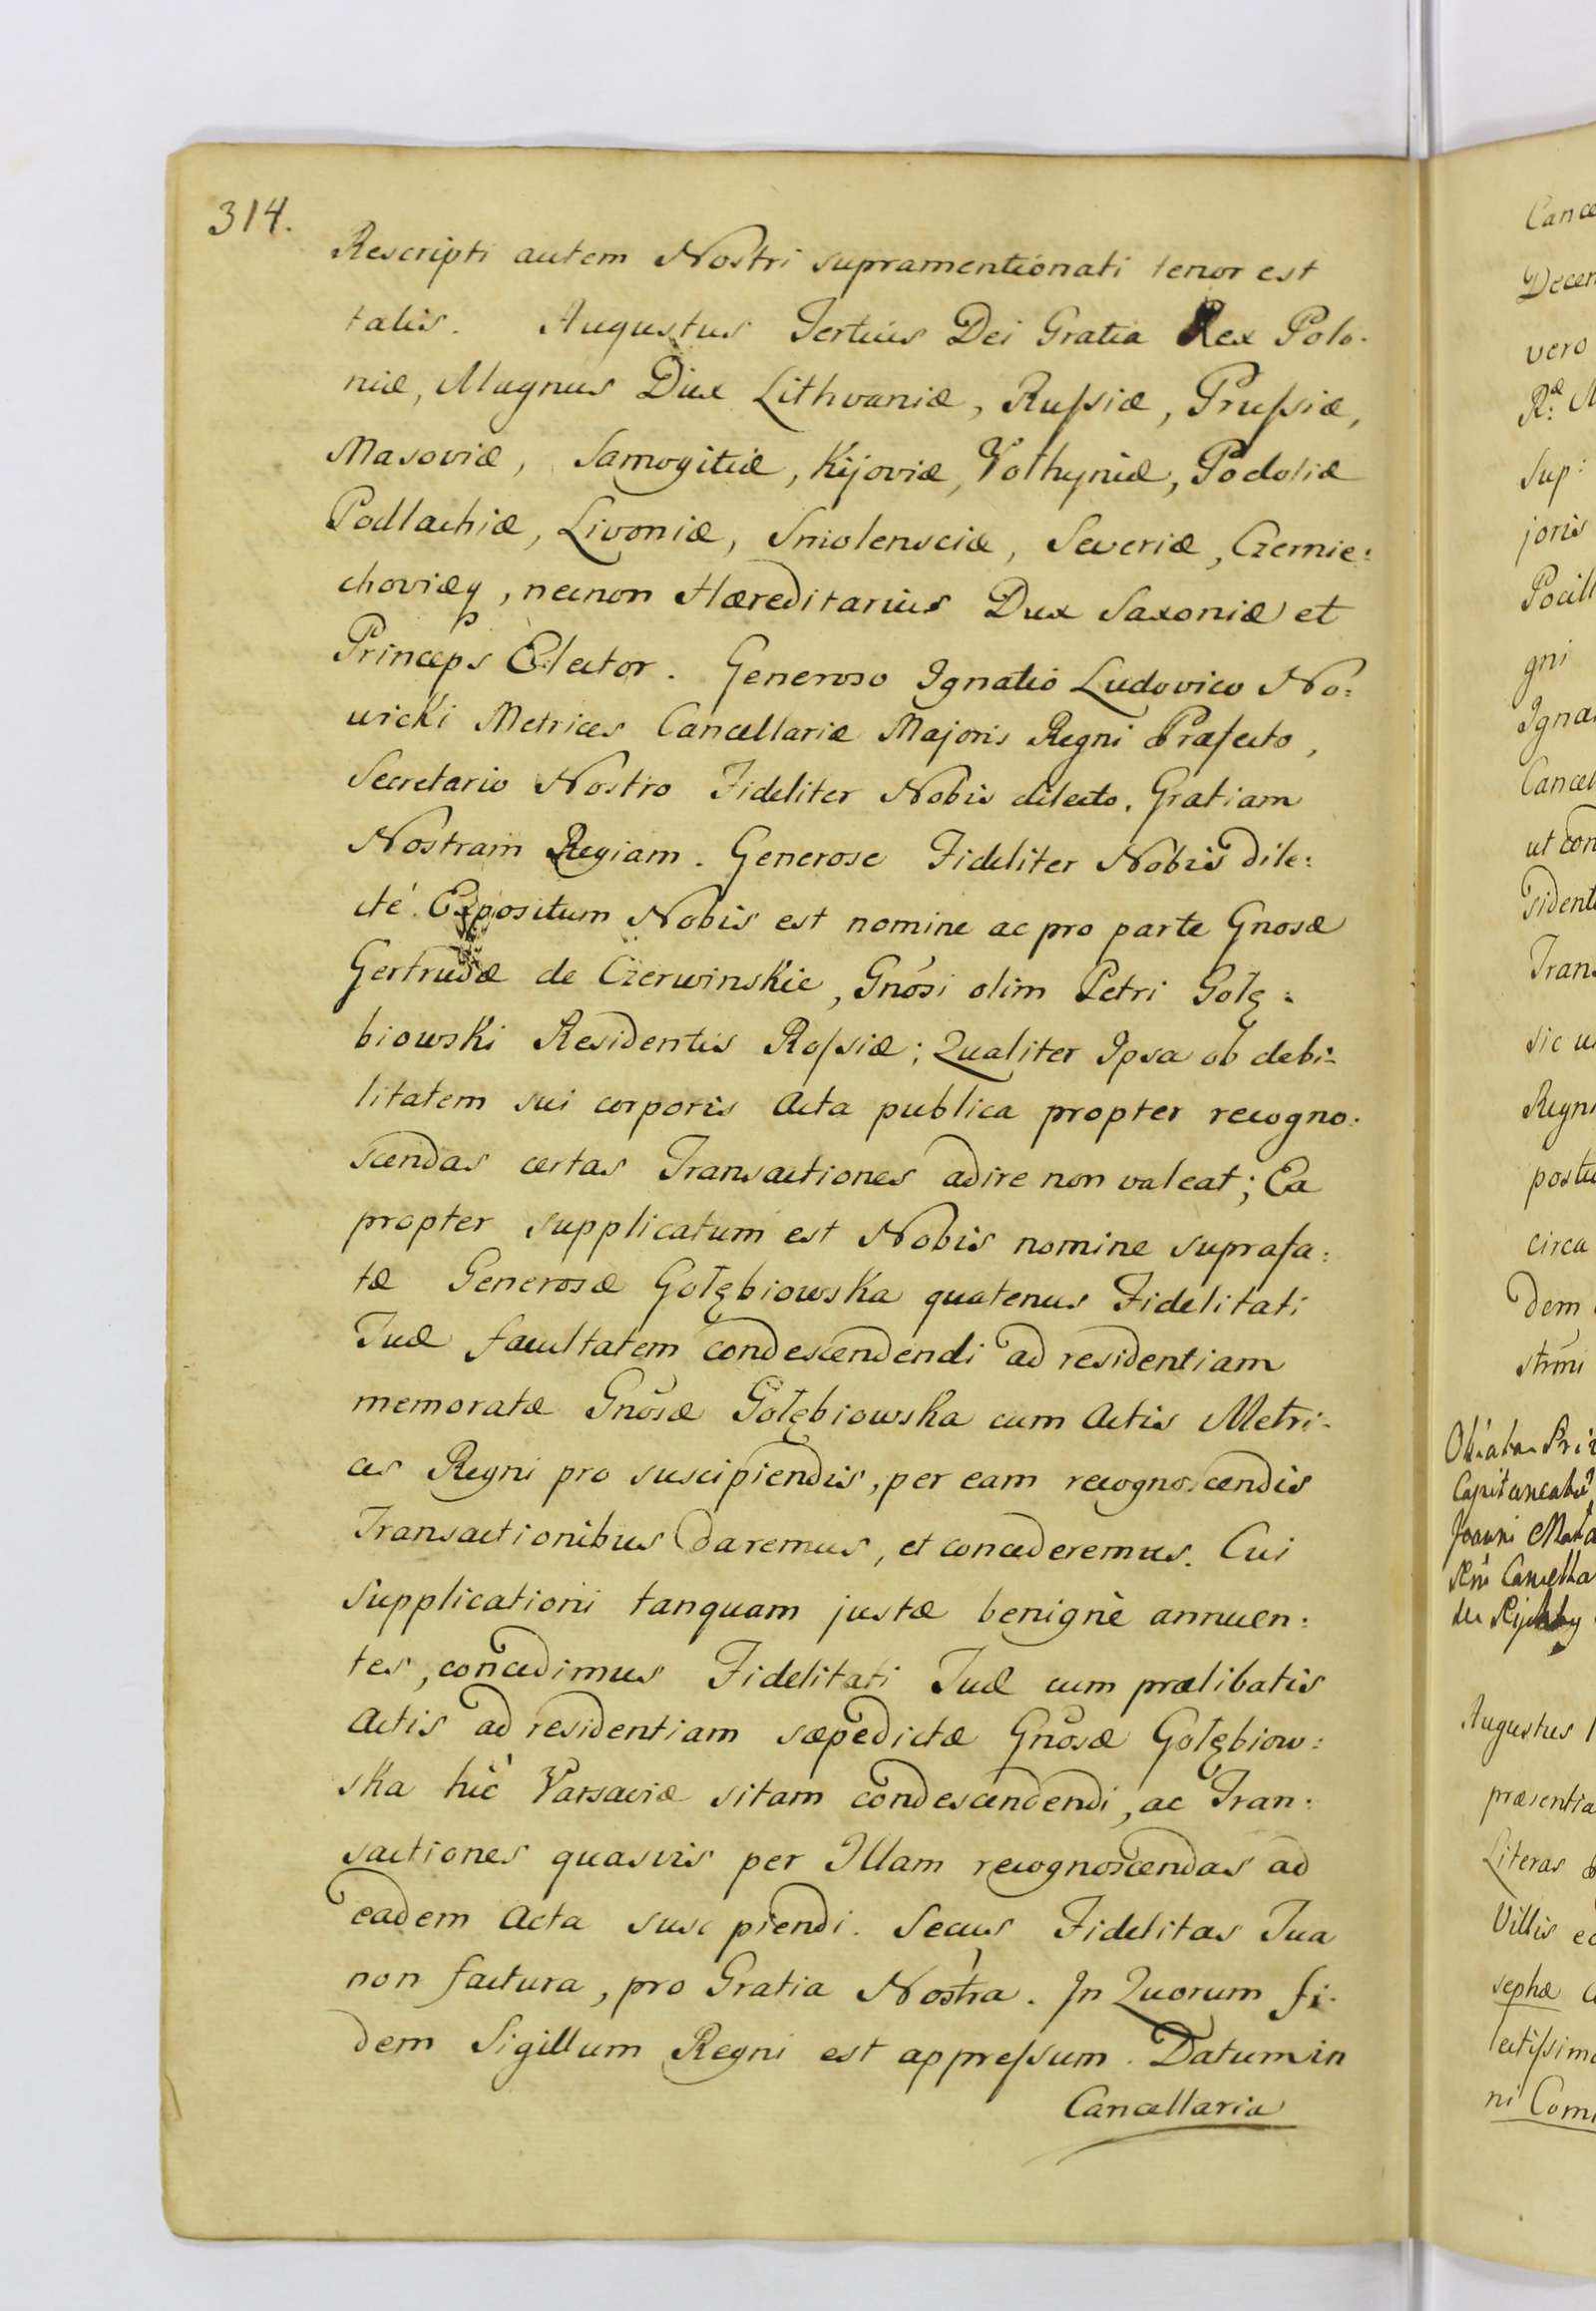 314.
Rescripti autem Nostri supramentionati tenor est
talis. Augustus Tertius Dei Gratia Rex Polo.
niæ, Magnus Dux Lithvaniæ, Rußiæ, Prußiæ,
Masoviæ, Samogitiæ, Kijoviæ, Volhyniæ, Podoliæ
Podlachiæ, Livoniæ, Smolensciæ, Severiæ, Czernie:
choviæq, necnon Hæreditarius Dux Saxoniæ et
Princeps Elector. Generoso Ignatio Ludovico No:
wicki Metrices Cancellariæ Majoris Regni Præfecto,
Secretario Nostro Fideliter Nobis dilecto. Gratiam
Nostram Regiam. Generose Fideliter Nobis dile:
cté. Expositum Nobis est nomine ac pro parte Gnosæ
Gertrudæ de Czerwinskie, Gnosi olim Petri Golę:
biowski Residentis Roßiæ; Qualiter Ipsa ob debi:
litatem sui corporis Acta publica propter recogno:
scendas certas Transactiones adire non valeat; Ea
propter supplicatum est Nobis nomine suprafa:
tæ Generosæ Gołębiowska quatenus Fidelitati
Tuæ facultatem condescendendi ad residentiam
memoratæ Gnosæ Gołębiowska cum Actis Metri:
ces Regni pro suscipiendis, per eam recognoscendis
Transactionibus daremus, et concederemus. Cui
Supplicationi tanquam justæ benignè annuen:
tes, concedimus Fidelitati Tuæ cum prælibatis
Actis ad residentiam sæpedictæ Gnosæ Gołębiow:
ska hic Varsaviæ sitam condescendendi, ac Tran:
sactiones quasvis per Illam recognoscendas ad
eadem Acta suscipiendi. Secus Fidelitas Tua
non factura, pro Gratia Nostra. In Quorum fi:
dem Sigillum Regni est appreßum. Datum in
Cancellaria
vero
Sup:
joris
gni
sic
circa
dem
Augustus
Literas
Villis
sephæ